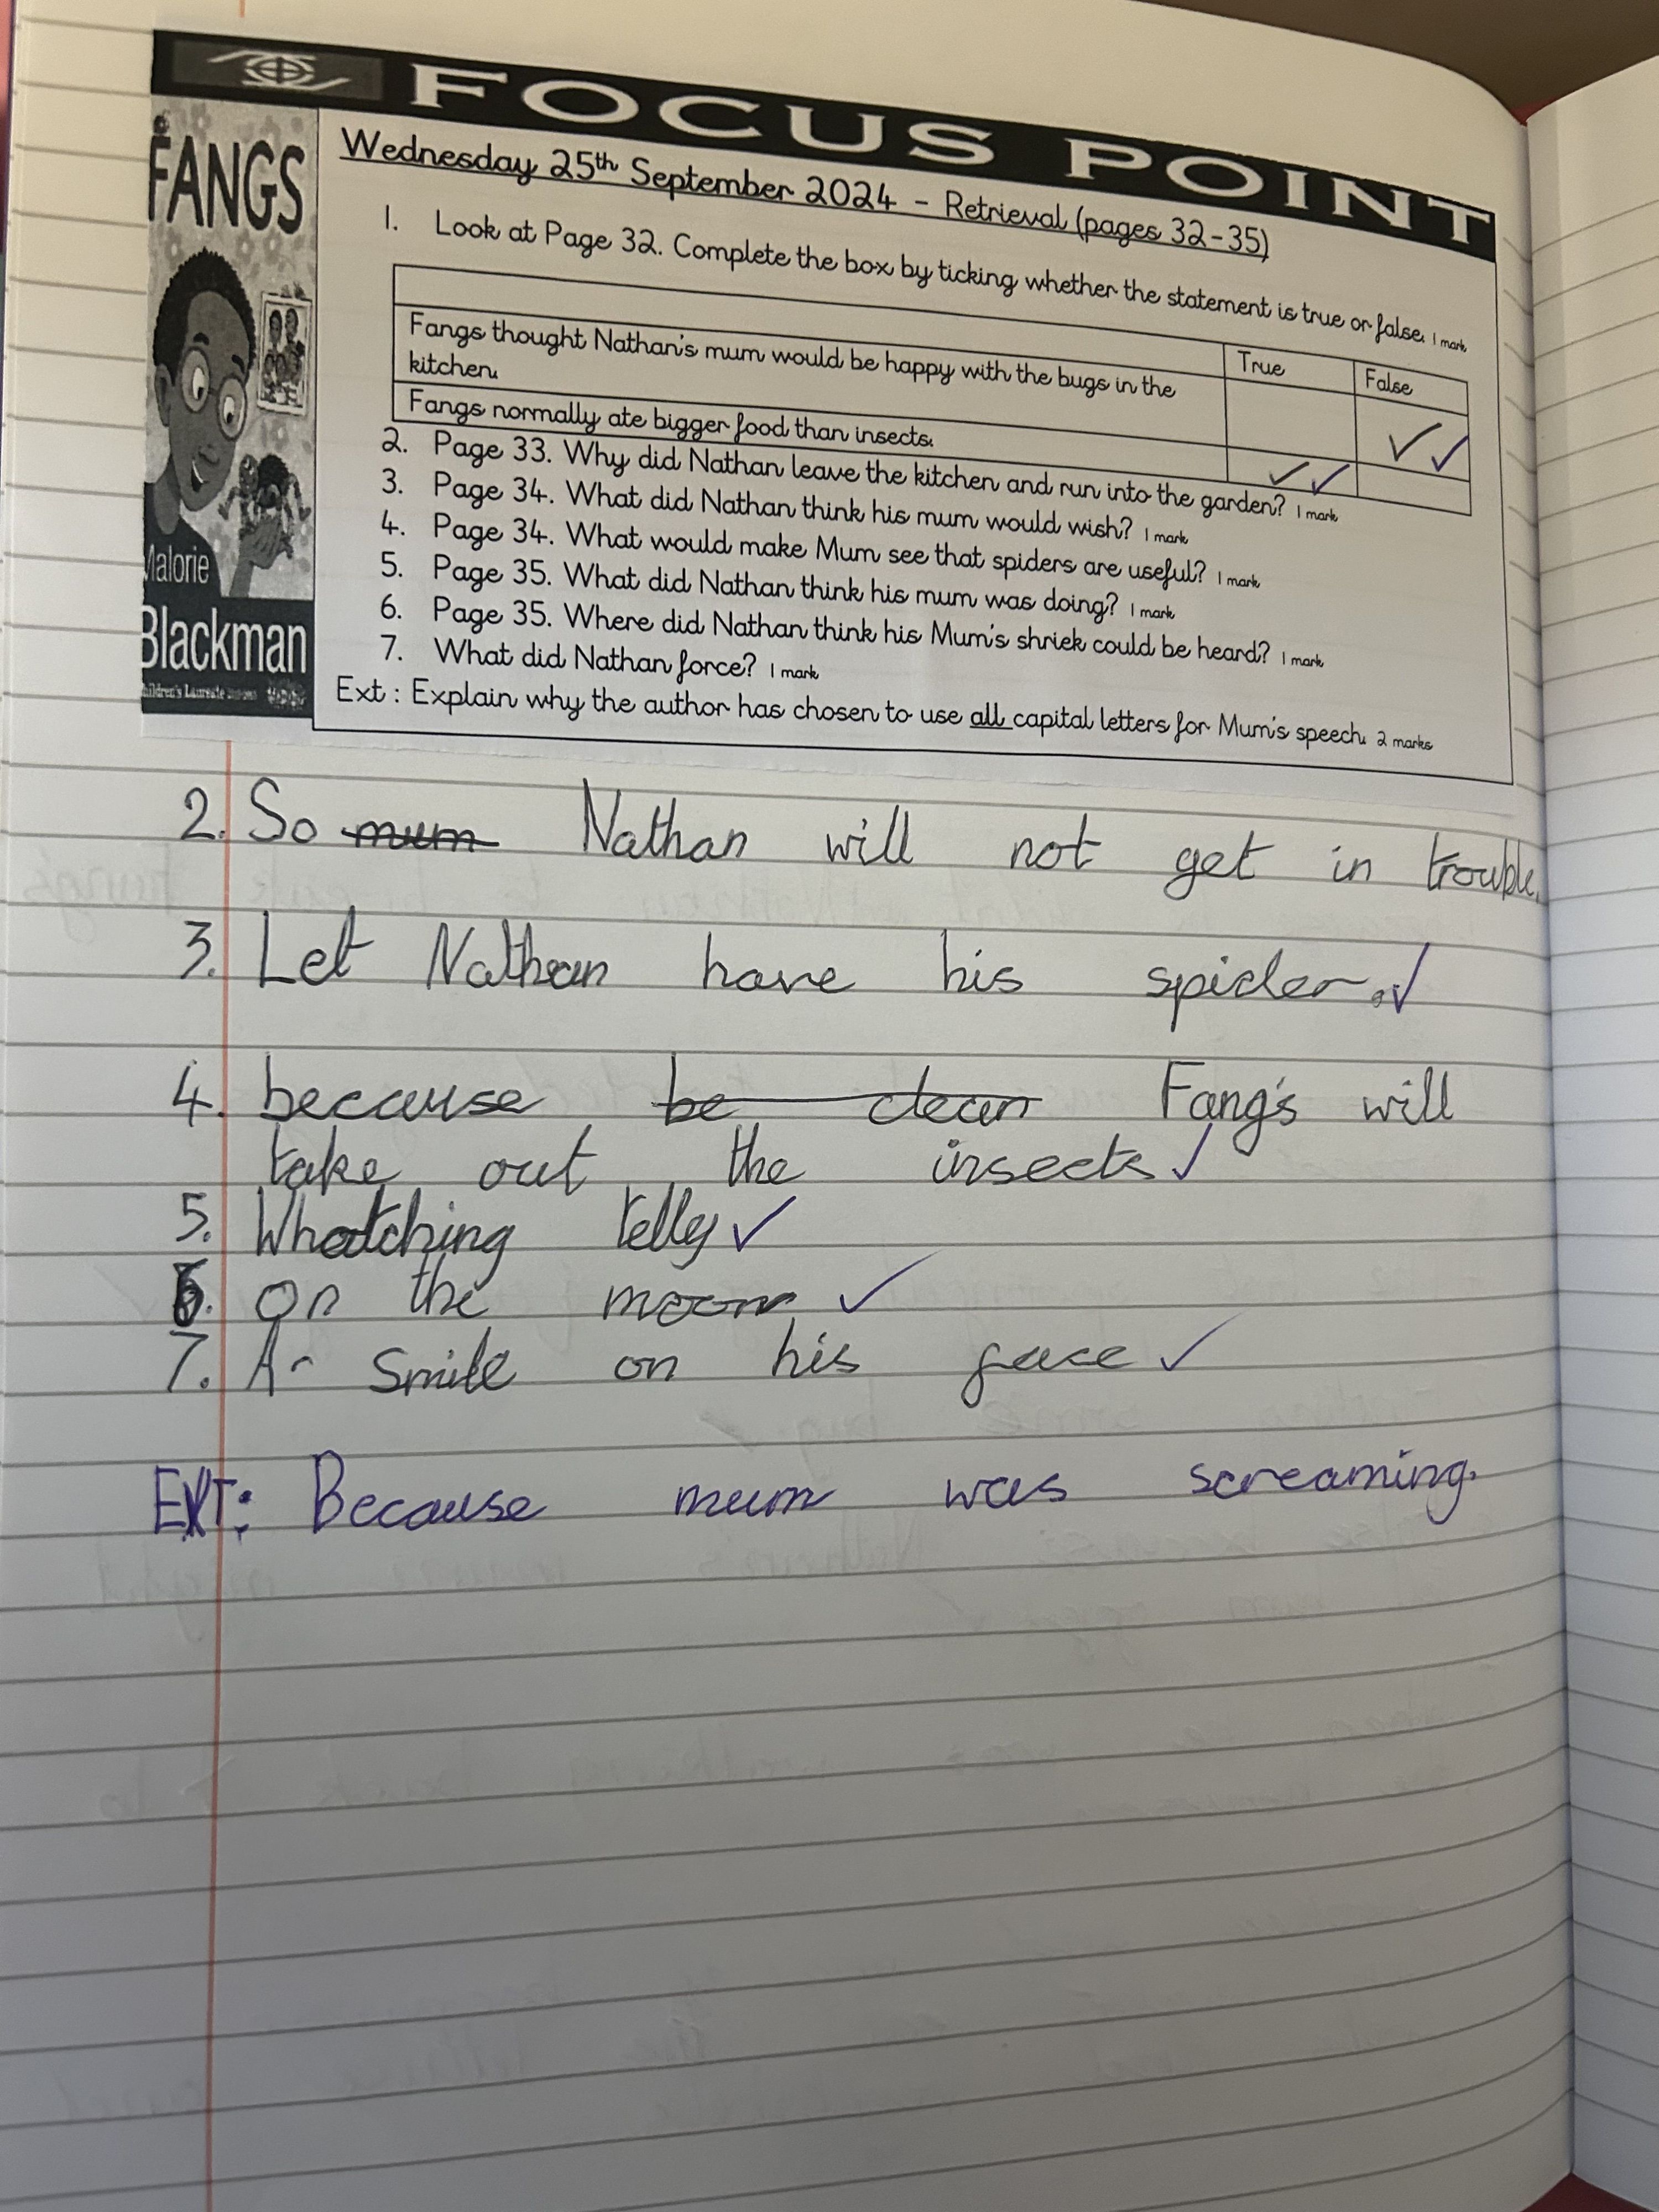 FOCUS POINT
FANGS
Malorie
Blackman
Children's Laureate
Wednesday 25th September 2024 - Retrieval (pages 32-35)
1. Look at Page 32. Complete the box by ticking whether the statement is true or false. 1 mark
True False
Fangs thought Nathan's mum would be happy with the bugs in the
kitchen. ✓✓
Fangs normally ate bigger food than insects. ✓✓
2. Page 33. Why did Nathan leave the kitchen and run into the garden? 1 mark
3. Page 34. What did Nathan think his mum would wish? 1 mark
4. Page 34. What would make Mum see that spiders are useful? 1 mark
5. Page 35. What did Nathan think his mum was doing? 1 mark
6. Page 35. Where did Nathan think his Mum's shriek could be heard? 1 mark
7. What did Nathan force? 1 mark
Ext : Explain why the author has chosen to use all capital letters for Mum's speech. 2 marks
2. So mum Nathan will not get in trouble.
3. Let Nathan have his spider. ✓
4. because be clean Fang's will
take out the insects ✓
5. Whatching telly ✓
6. on the moon ✓
7. A smile on his face ✓
EXT: Because mum was screaming.